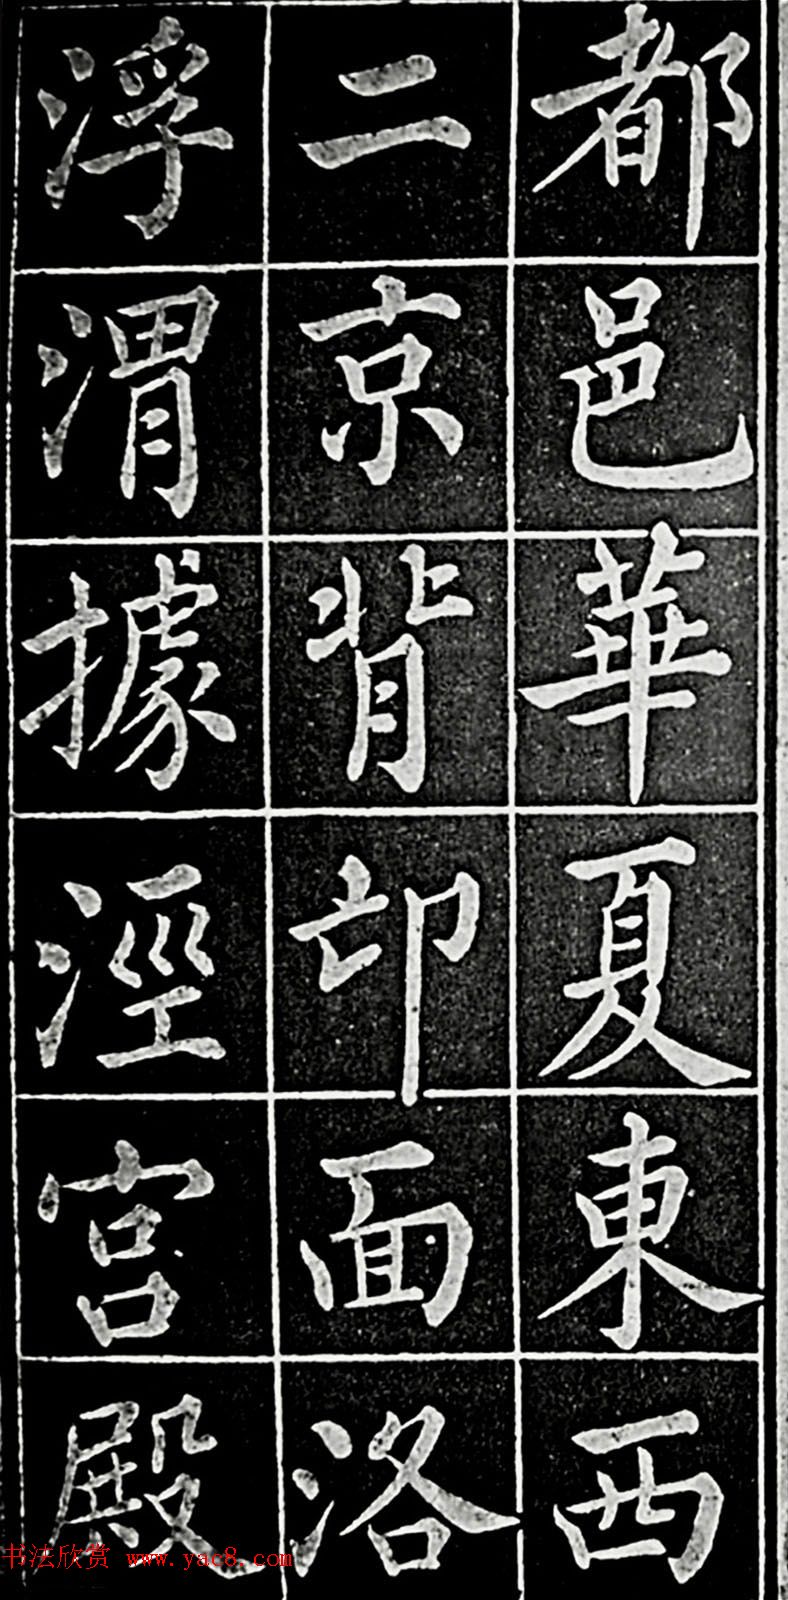 都邑華夏東西
二京背卭面洛
浮渭據涇宮殿
书法欣赏 www.yac8.com